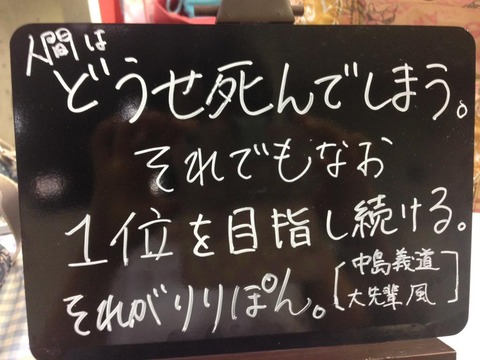 人間は
どうせ死んでしまう。
それでもなお
1位を目指し続ける。
それがりりぽん。
[中島義道
大先輩風]